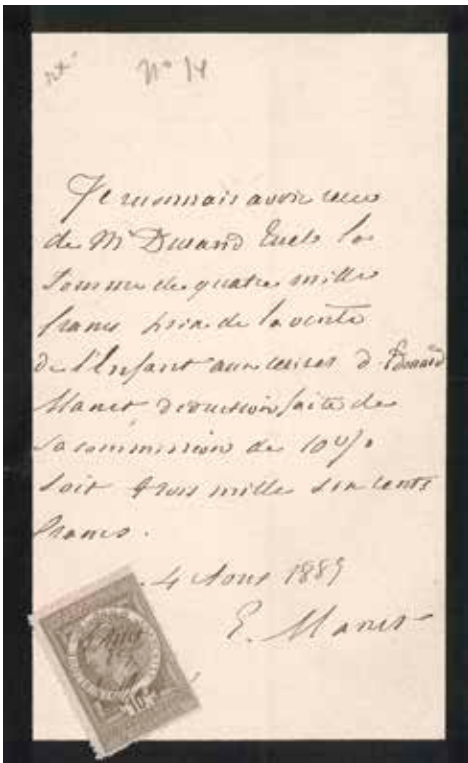 N° 14
Je reconnais avoir recu
de Mr Durand Ruel la
somme de quatre mille
francs prix de la vente
de l'Enfant aux cerises d'Edouard
Manet déduction faite de
sa commission de 10%
soit trois mille six cents
francs.
4 Aout 1889
E. Manet